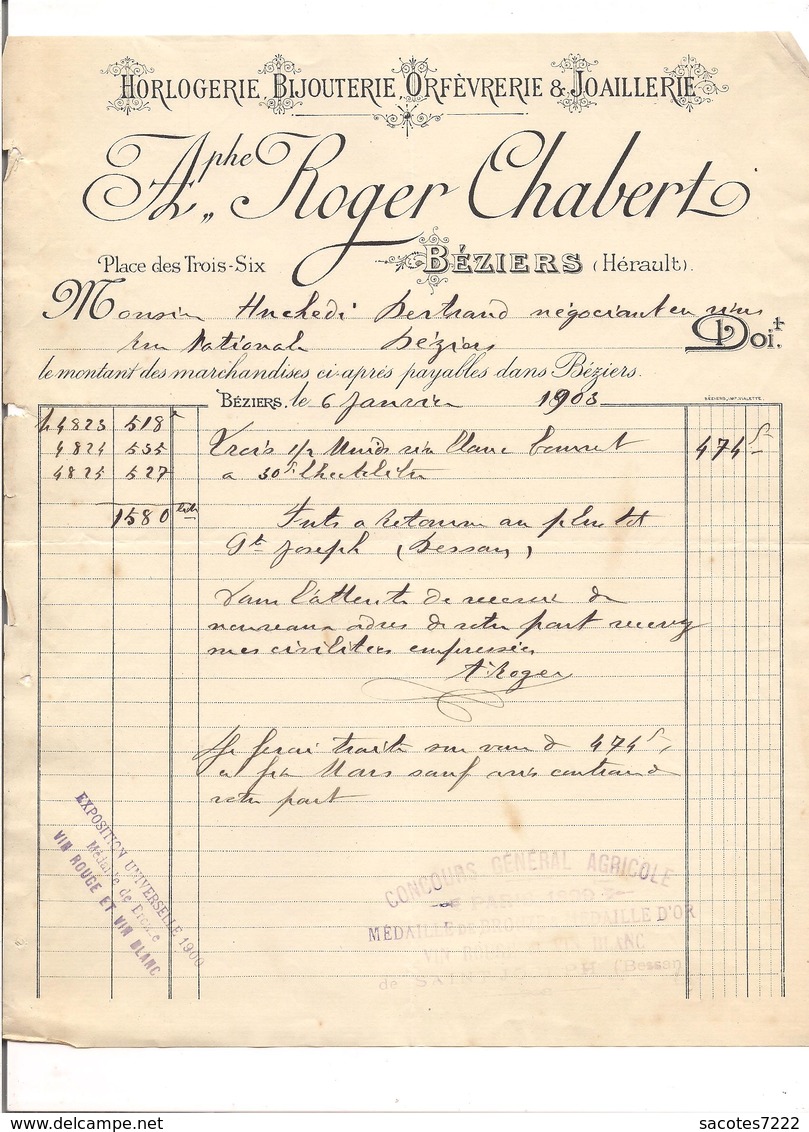 HORLOGERIE, BIJOUTERIE, ORFÈVRERIE & JOAILLERIE
Aphe Roger Chabert
Place des Trois-Six BÉZIERS (Hérault).
Monsieur Bertrand négociant en vins
rue Nationale Béziers Doit
le montant des marchandises ci-après payables dans Béziers.
BÉZIERS, le 6 Janvier 1903
4823 518
4824 535 Trois 1/2 Muids vin blanc 474 f
4825 527 a 30 f l'hectolitre
1580 litr Futs a retourner au plus tot
St Joseph (Bessan)
Dans l'attente de recevoir de
nouveaux ordres de votre part recevez
mes civilitées empressées
A. Roger
Je ferai traite sur vous de 474 f,
a fin Mars sauf avis contraire de
votre part
EXPOSITION UNIVERSELLE 1900
Médaille de Bronze
VIN ROUGE ET VIN BLANC
CONCOURS GÉNÉRAL AGRICOLE
PARIS
MÉDAILLE DE BRONZE MÉDAILLE D'OR
VIN ROUGE BLANC
de SAINT JOSEPH (Bessan
sacotes7222